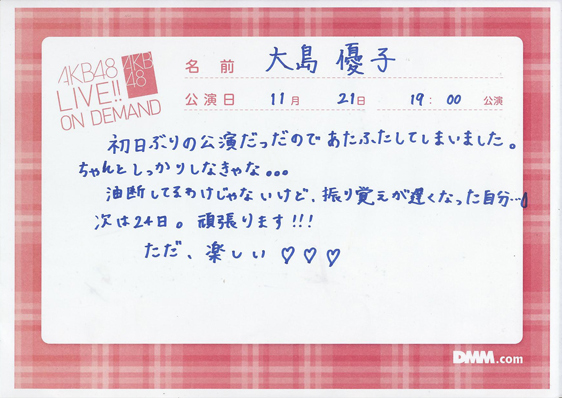 AKB48
LIVE!!
ON DEMAND
AKB
48
名前 大島 優子
公演日 11月 21日 19:00 公演
初日ぶりの公演だっだのであたふたしてしまいました。
ちゃんとしっかりしなきゃな...
油断してるわけじゃないけど、振り覚えが遅くなった自分…
次は24日。頑張ります!!!
ただ、楽しい♡♡♡
DMM.com